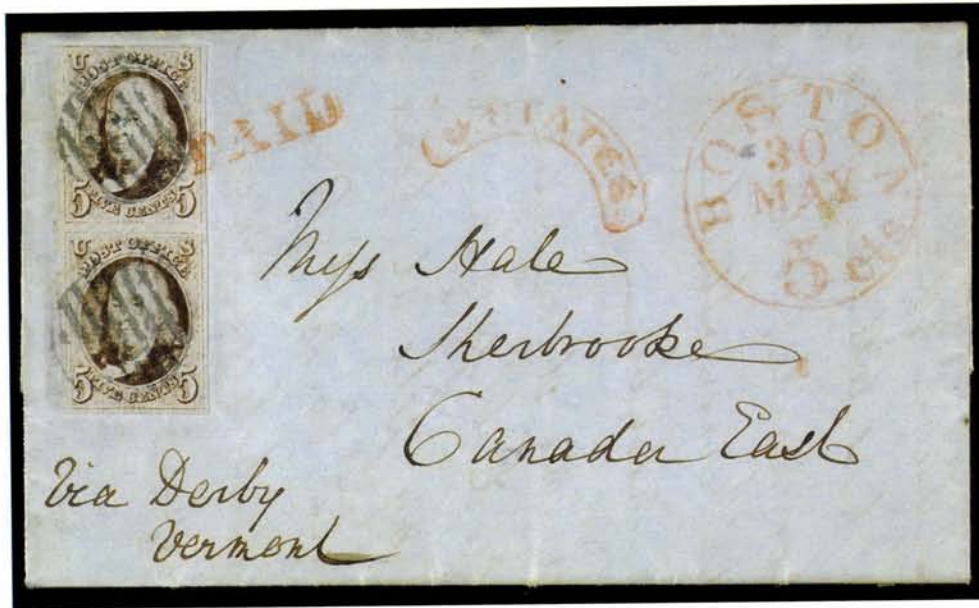 U S
POST OFFICE
5 FIVE CENTS 5
U S
POST OFFICE
5 FIVE CENTS 5
PAID
STATES
BOSTON
30
MAY
5 cts
Hale
Sherbrooke
Canada East
Via Derby
Vermont